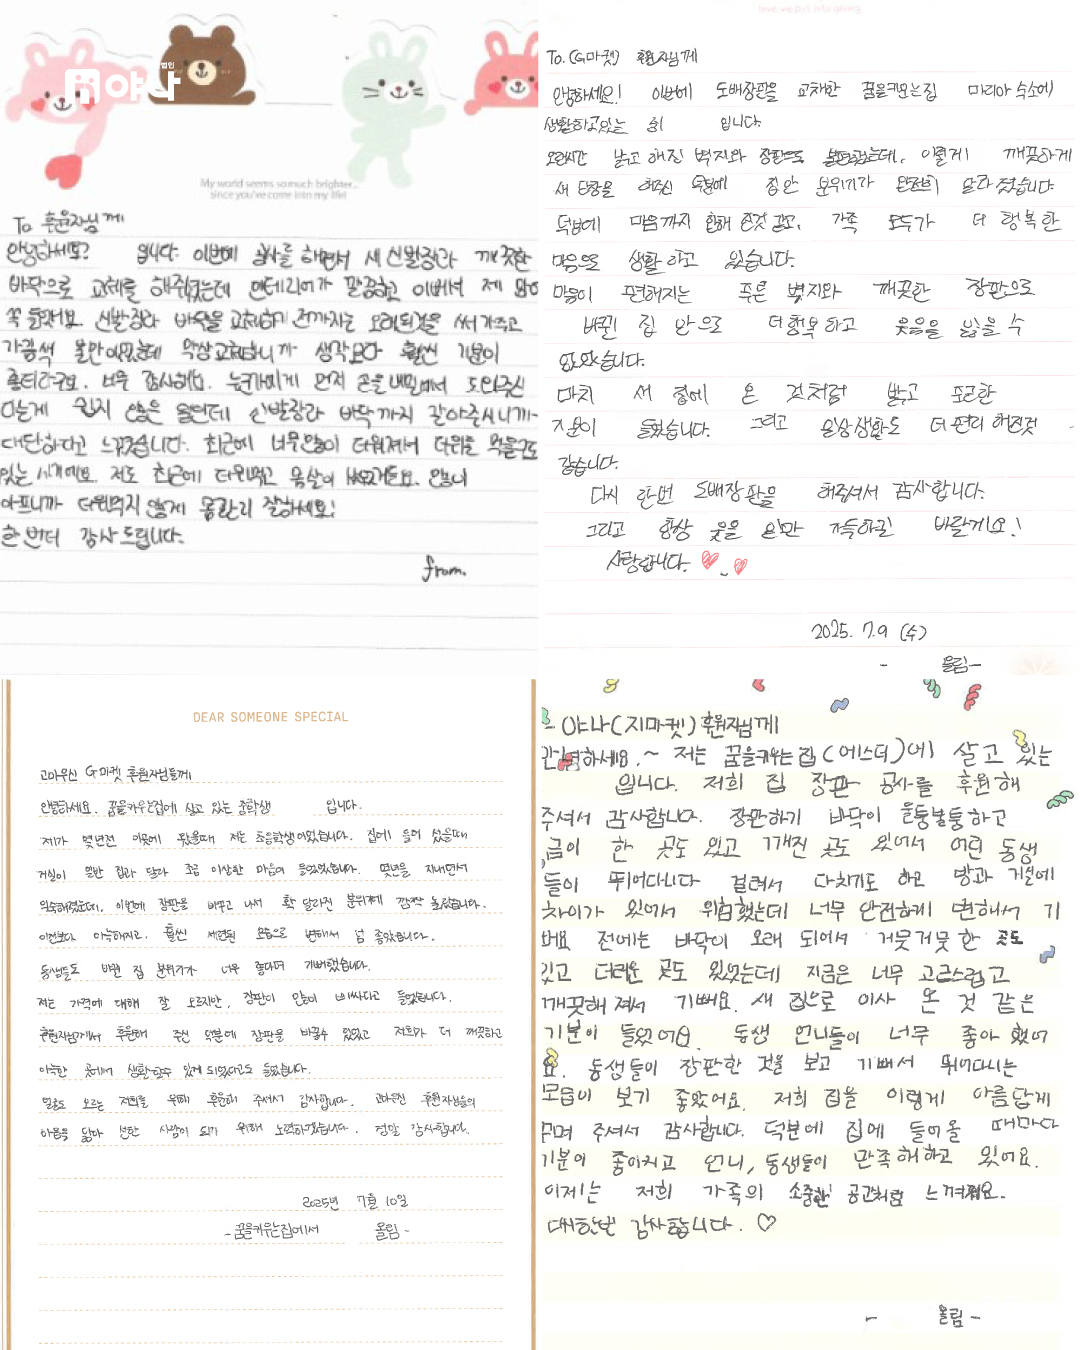 법인
야나
My world seems so much brighter...
since you've come into my life!
To 후원자님께
안녕하세요? 입니다. 이번에 공사를 하면서 새 신발장과 깨끗한
바닥으로 교체를 해주셨는데 인테리어가 깔끔하고 이뻐서 제 맘에
쏙 들었어요. 신발장과 바닥을 교체하기 전까지는 오래된것을 써서 가주고
가끔씩 불안했었는데 막상 교체하니까 생각보다 훨씬 기분이
좋더라구요. 너무 감사해요. 누군가에게 먼저 손을 내밀어서 도와주신
다는게 쉽지 않은 일인데 신발장과 바닥까지 갈아주시니까
대단하다고 느꼈습니다. 최근에 너무많이 더워져서 더위를 먹을수도
있는 시기에요. 저도 최근에 더위먹고 몸살이 났었거든요. 많이
아프니까 더위먹지 않게 몸관리 잘하세요!
한번더 감사드립니다.
from.
love we put into giving
To. (G마켓) 후원자님께
안녕하세요! 이번에 도배장판을 교체한 꿈을키우는집 마리아 숙소에
생활하고있는 입니다.
오랜시간 낡고 해진 벽지와 장판으로 불편했는데, 이렇게 깨끗하게
새 단장을 해주신 덕분에 집안 분위기가 완전히 달라졌습니다
덕분에 마음까지 환해 진것 같고, 가족 모두가 더 행복한
마음으로 생활하고 있습니다.
마음이 편해지는 좋은 벽지와 깨끗한 장판으로
바뀐 집 안으로 더행복하고 웃음을 잃을 수
있었습니다.
마치 새 집에 온 것처럼 밝고 포근한
기분이 들었습니다. 그리고 일상생활도 더 편리 해진것
같습니다.
다시 한번 도배장판을 해주셔서 감사합니다.
그리고 항상 웃을 일만 가득하길 바랄게요!
사랑합니다.
2025. 7.9 (수)
- 올림-
DEAR SOMEONE SPECIAL
고마우신 G마켓 후원자님들께
안녕하세요. 꿈을키우는집에 살고 있는 중학생 입니다.
제가 몇년전 이곳에 왔을때 저는 초등학생이었습니다. 집에 들어 섰을때
거실이 일반 집과 달라 조금 이상한 마음이 들었었습니다. 몇년을 지내면서
익숙해졌는데, 이번에 장판을 바꾸고 나서 확 달라진 분위기에 깜짝 놀랐습니다.
이전보다 아늑해지고, 훨씬 세련된 모습으로 변해서 넘 좋았습니다.
동생들도 바뀐 집 분위기가 너무 좋다며 기뻐했습니다.
저는 가격에 대해 잘 모르지만, 장판이 많이 비싸다고 들었습니다.
후원자님께서 후원해 주신 덕분에 장판을 바꿀수 있었고 저희가 더 깨끗하고
아늑한 곳에서 생활할수 있게 되었다고도 들었습니다.
얼굴도 모르는 저희를 위해 후원해 주셔서 감사합니다. 고마우신 후원자님들의
마음을 닮아 선한 사람이 되기 위해 노력하겠습니다. 정말 감사합니다.
2025년 7월 10일
-꿈을키우는집에서 올림-
- 야나(지마켓)후원자님께
안녕하세요.~ 저는 꿈을키우는집(에스더)에 살고 있는
입니다. 저희 집 장판 공사를 후원해
주셔서 감사합니다. 장판하기 바닥이 울퉁불퉁하고
금이 한 곳도 있고 깨진 곳도 있어서 어린 동생
들이 뛰어다니다 걸려서 다치기도 하고 방과 거실에
차이가 있어서 위험했는데 너무 안전하게 변해서 기
뻐요 전에는 바닥이 오래 되어서 거뭇거뭇한 곳도
있고 더러운 곳도 있었는데 지금은 너무 고급스럽고
깨끗해 져서 기뻐요. 새 집으로 이사 온 것 같은
기분이 들었어요. 동생 언니들이 너무 좋아 했어
요. 동생들이 장판한 것을 보고 기뻐서 뛰어다니는
모습이 보기 좋았어요. 저희 집을 이렇게 아름답게
꾸며 주셔서 감사합니다. 덕분에 집에 들어올 때마다
기분이 좋아지고 언니, 동생들이 만족해하고 있어요.
이제는 저희 가족의 소중한 공간처럼 느껴져요.
대한번 감사합니다. ♡
- 올림-